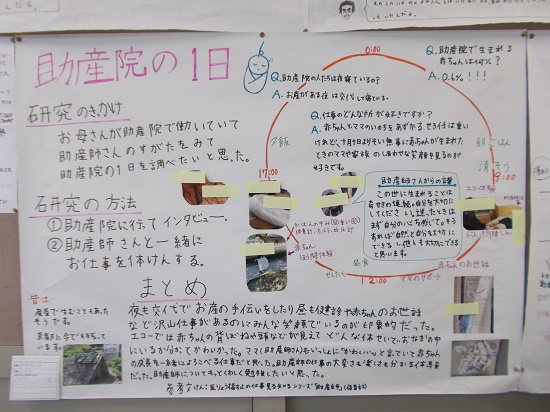 助産院の1日
研究のきっかけ
お母さんが助産院で働いていて
助産師さんのすがたをみて
助産院の1日を調べたいと思った。
研究の方法
①助産院に行ってインタビュー。
②助産師さんと一緒に
お仕事を体けんする。
0:00
Q.助産院で生まれる
赤ちゃんは何%?
A.0.6%!!!
Q.助産院の人たちは夜寝ているの?
A.お産がある夜は交代して寝ている。
Q.仕事のどんな所が好きですか?
A.赤ちゃんとママのいのちをあずかるせき任は重い
けれど、十月十日よりそい無事に赤ちゃんが生まれた
ときのママや家族のしあわせな笑顔を見るのが
好きです。
夕飯
17:00
朝ごはん
清そう
9:00
エコー体験
助産師さんからの話
この世に生まれることは
奇せきの連続。自分を大切に
してください。迷ったときは
まず自分の心を感じて。そう
すれば自然と自分も大切に
できるし他人も大切にできる
と思います。
赤ちゃん
昼食
せんたく
12:00
ママのサポート
赤ちゃんのお世話
まとめ
夜も交代でお産の手伝いをしたり昼も健診や赤ちゃんのお世話
など沢山仕事があるのにみんな笑顔でいるのが印象的だった。
エコーでは赤ちゃんの背ぼねや頭などが見えてどんな体せいでおなかの中
にいるか分かってかわいかった。ママと助産師さんもいっしょに"かわいい〜"と言っていて赤ちゃん
の成長を一緒によろこべる仕事だと思った。助産師の仕事の大変さも楽しさも分かる仕事
だった。助産師についてもっとくわしく勉強したいと思った。
昔は…
産屋で産むこともあった
そうです。
京都府に今でも残って
います。